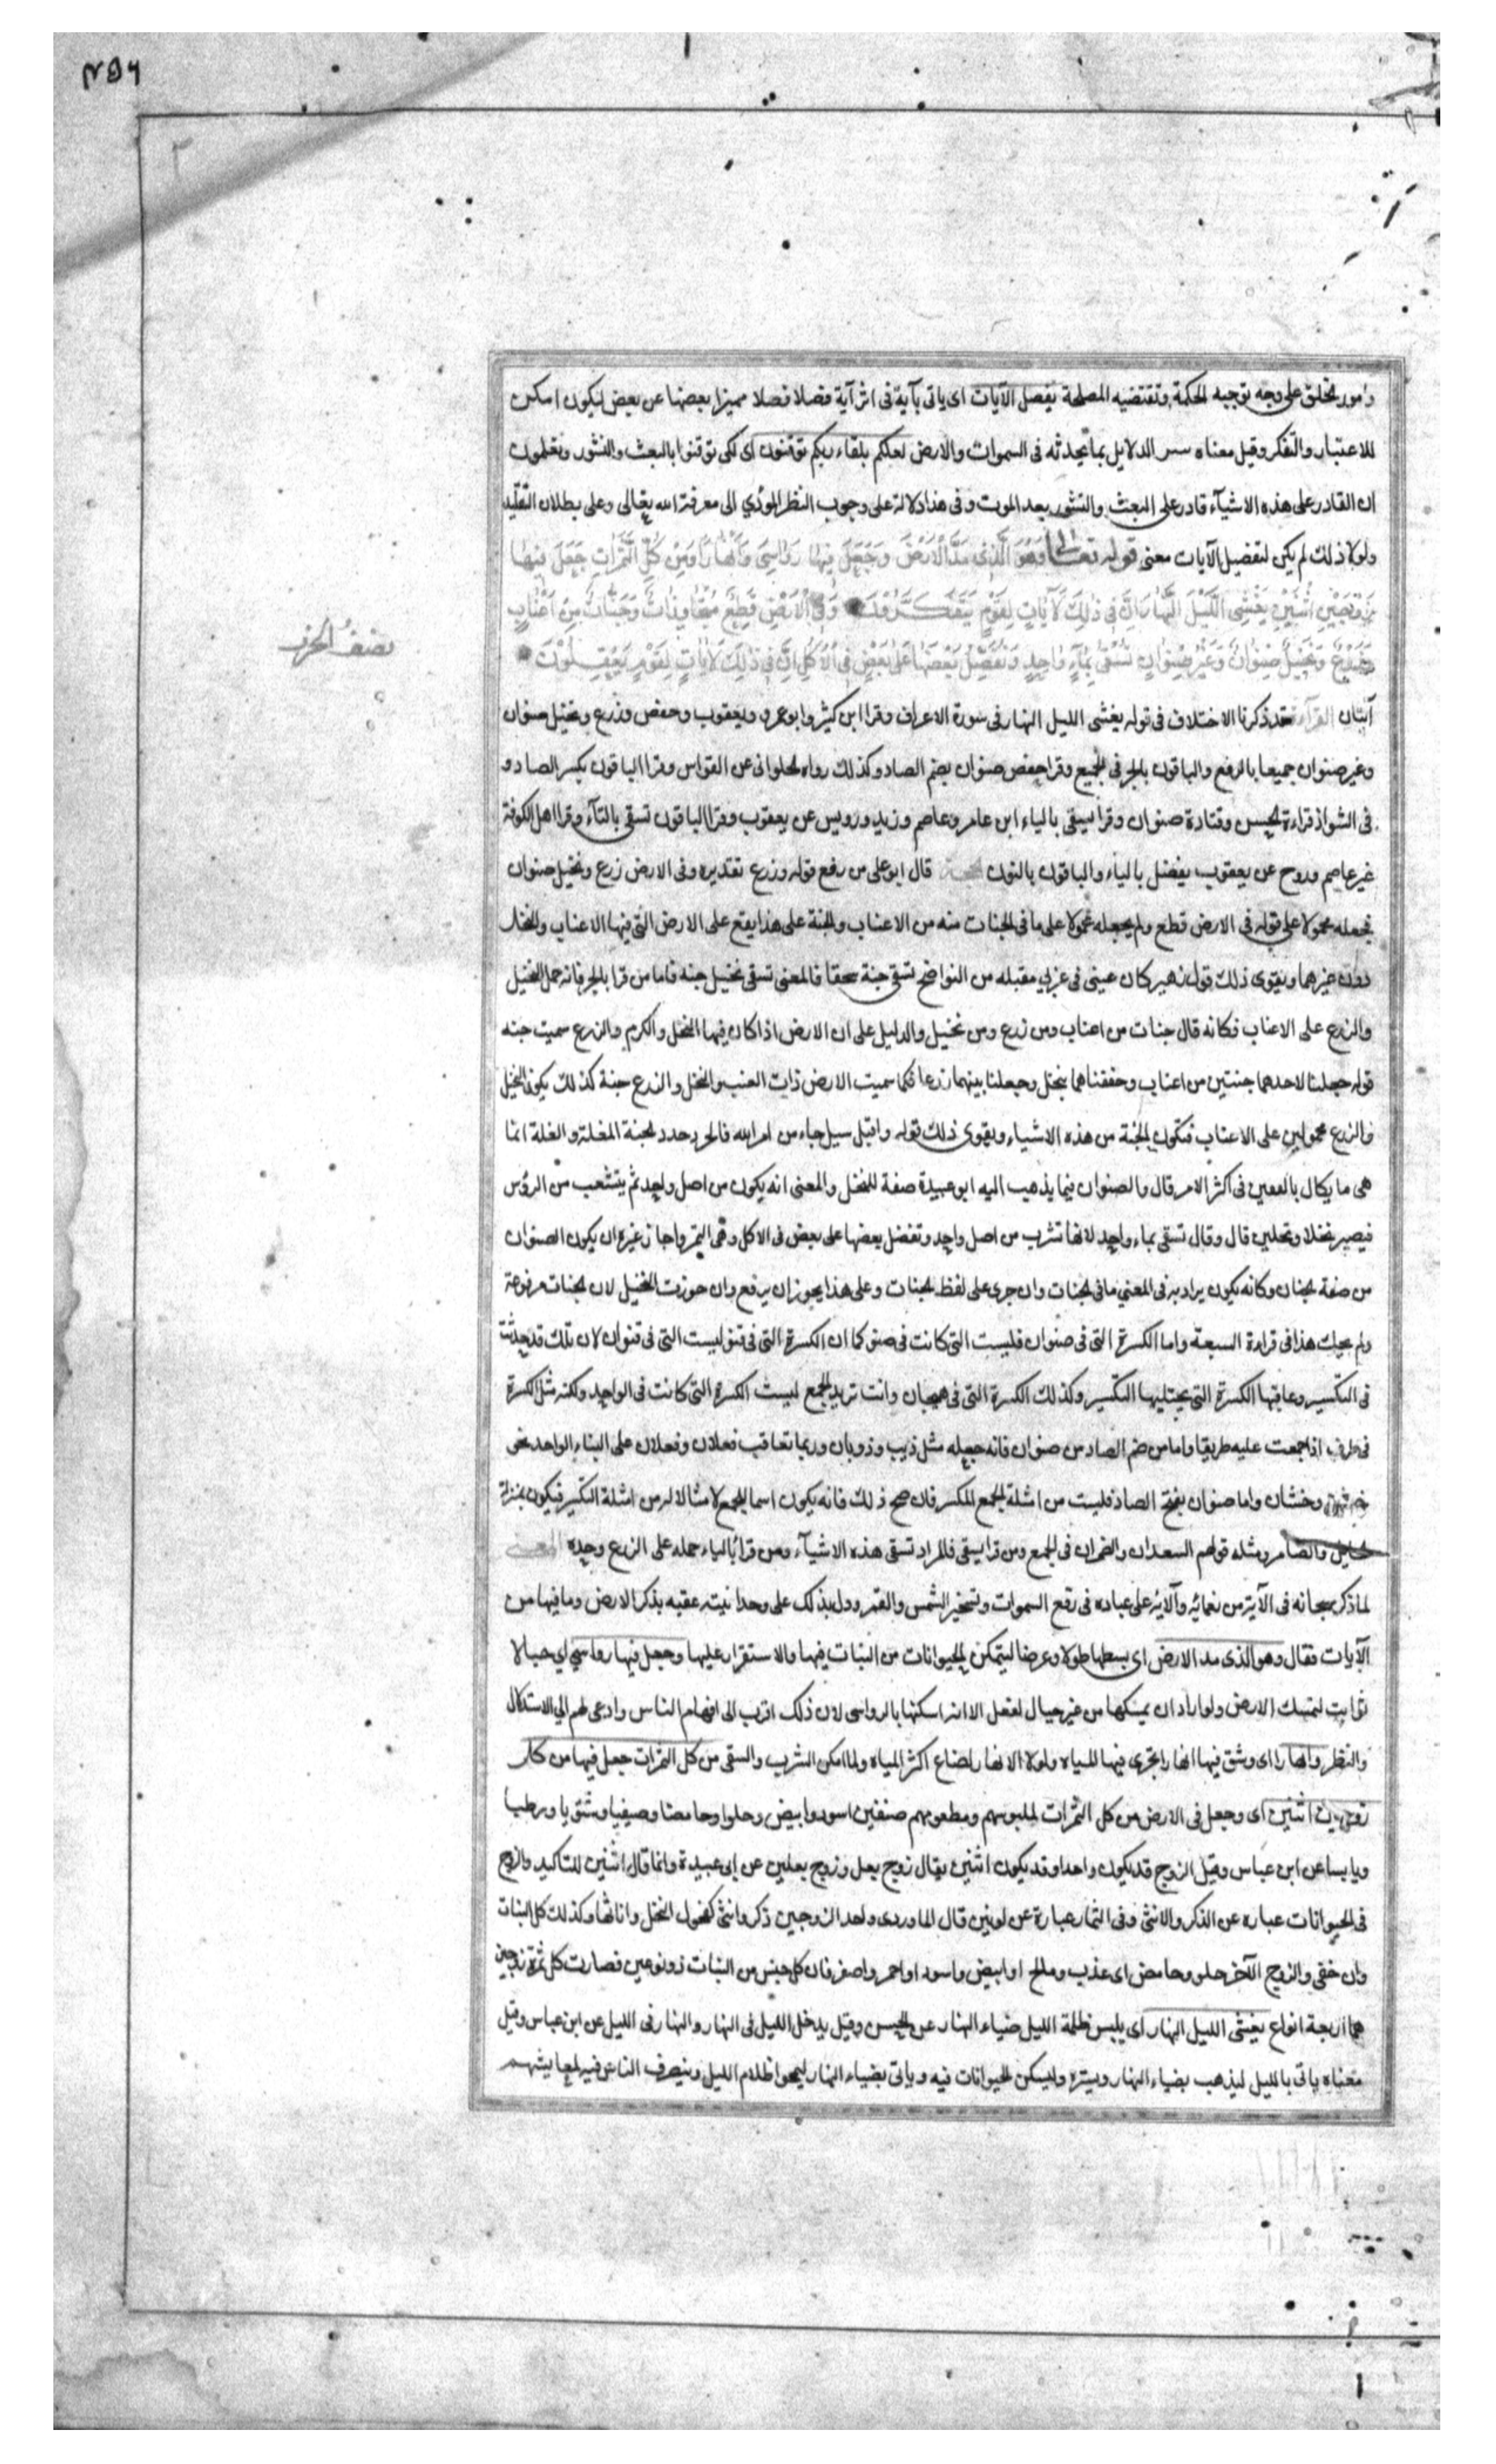 وامور بخلق على وجه توجبه الحكمة وتقتضيه المصلحة يفصل الآيات اى ياتى بآية فى اثر آية فصلا فصلا مميزا بعضها عن بعض ليكون امكن
للاعتبار والتفكر وقيل معناه الدلايل بما يحدثه فى السموات والارض لعلكم بلقاء ربكم توقنون اى لكى توقنوا بالبعث والنشور وتعلمون
ان القادر على هذه الاشيآء قادر على البعث والنشور بعد الموت وفى هذا دلالة على وجوب النظر المؤدي الى معرفة الله تعالى وعلى بطلان التقليد
ولولا ذلك لم يكن لتفصيل الآيات معنى قوله تعالى وَهُوَ الَّذى مَدَّ الْاَرْضَ وَجَعَلَ فِيهَا رَوَاسِىَ وَاَنْهَارًا وَمِنْ كُلِّ الثَّمَرَاتِ جَعَلَ فِيهَا
زَوْجَيْنِ اثْنَيْنِ يُغْشِى اللَّيْلَ النَّهَارَ اِنَّ فى ذَلِكَ لَآيَاتٍ لِقَوْمٍ يَتَفَكَّرُونَ وَفِى الْاَرْضِ قِطَعٌ مُتَجَاوِرَاتٌ وَجَنَّاتٌ مِنْ اَعْنَابٍ
وَزَرْعٌ وَنَخِيلٌ صِنْوَانٌ وَغَيْرُ صِنْوَانٍ تُسْقَى بِمَآءٍ وَاحِدٍ وَنُفَضِّلُ بَعْضَهَا عَلَى بَعْضٍ فِى الْاُكُلِ اِنَّ فِى ذَلِكَ لَآيَاتٍ لِقَوْمٍ يَعْقِلُونَ
نصف الحزب
آيتان القرآءة قد ذكرنا الاختلاف فى قوله يغشى الليل النهار فى سورة الاعراف وقرا ابن كثير وابو عمرو ويعقوب وحفص وزرع ونخيل صنوان
وغير صنوان جميعا بالرفع والباقون بالجر فى الجميع وقرا حفص صنوان بضم الصاد وكذلك رواه الحلوانى عن القواس وقرا الباقون بكسر الصاد و
فى الشواذ قراءة الحسن وقتادة صنوان وقرا يسقى بالياء ابن عامر وعاصم وزيد ورويس عن يعقوب وقرا الباقون تسقى بالتآء وقرا اهل الكوفة
غير عاصم وروح عن يعقوب يفضل بالياء والباقون بالنون الحجة قال ابو على من رفع قوله وزرع تقديره وفى الارض زرع ونخيل صنوان
فجعله محمولا على قوله فى الارض قطع ولم يجعله محمولا على ما فى الجنات منه من الاعناب والجنة على هذا يقع على الارض التى فيها الاعناب والنخل
دون غيرهما ويقوى ذلك قول زهير كان عينى فى غربي مقبله من النواضح تسقى جنة سحقا فالمعنى تسقى نخيل جنه فاما من قرا بالجر فانه حمل النخيل
والزرع على الاعناب فكانه قال جنات من اعناب ومن زرع ومن نخيل والدليل على ان الارض اذا كان فيها النخل والكرم والزرع سميت جنه
قوله جعلنا لاحدهما جنتين من اعناب وحففناهما بنخل وجعلنا بينهما زرعا فكما سميت الارض ذات العنب والنخل والزرع جنة كذلك يكون النخيل
والزرع محمولين على الاعناب فتكون الجنة من هذه الاشياء ويقوى ذلك قوله واقبل سيل جاء من امر الله فالحرد حدد الجنة المغلة والغلة انما
هى ما يكال بالقفيز فى اكثر الامر قال والصنوان فيما يذهب اليه ابو عبيدة صفة للنخل والمعنى انه يكون من اصل واحد ثم يتشعب من الرؤس
فيصير نخلا ونخلين قال وقال تسقى بماء واحد لانها تشرب من اصل واحد وتفضل بعضها على بعض فى الاكل وهى التمر واجاز غيره ان يكون الصنوان
من صفة الجنان وكانه يكون يراد به فى المعني ما فى الجنات وان جرى على لفظ الجنات وعلى هذا يجوز ان يرفع وان جررت النخيل لان الجنات مرفوعة
ولم يحك هذا فى قراءة السبعة واما الكسرة التى فى صنوان فليست التى كانت فى صنو كما ان الكسرة التى فى قنو ليست التى فى قنوان لان تلك قد حذفت
فى التكسير وعاقبها الكسرة التى يجتلبها التكسير وكذلك الكسرة التى فى هجان وانت تريد الجمع ليست الكسرة التى كانت فى الواحد ولكنه مثل الكسرة
فى ظراف اذا جمعت عليه ظريفا واما من ضم الصاد من صنوان فانه جعله مثل ذيب وذوبان وربما تعاقب فعلان وفعلان على البناء الواحد نحو
وحشان واما صنوان بفتح الصاد فليست من امثلة الجمع المكسر فان صح ذلك فانه يكون اسما للجمع لا مثالا له من امثلة التكسير فيكون بمنزلة
الجامل والسامر ومثله قولهم السعدان والضمران فى الجمع ومن قرا يسقى فالمراد تسقى هذه الاشيآء ومن قرأ بالياء حمله على الزرع وحده المعنى
لما ذكر سبحانه فى الآية من نعمائه وآلائه على عباده فى رفع السموات وتسخير الشمس والقمر ودل بذلك على وحدانيته عقبه بذكر الارض وما فيها من
الآيات فقال وهو الذى مد الارض اى بسطها طولا وعرضا ليتمكن الحيوانات من الثبات فيها والاستقرار عليها وجعل فيها رواسي اي جبالا
ثوابت لتمسك الارض ولو اراد ان يمسكها من غير جبال لفعل الا انه امسكها بالرواسى لان ذلك اقرب الى افهام الناس وادعى لهم الي الاستدلال
والنظر وانهارا اى وشق فيها انهارا تجرى فيها المياه ولولا الانهار لضاع اكثر المياه ولما امكن الشرب والسقى من كل الثمرات جعل فيها من كل
زوجين اثنين اى وجعل فى الارض من كل الثمرات لملبوسهم ومطعومهم صنفين اسود وابيض وحلوا وحامضا وصيفيا وشتويا ورطبا
ويابسا عن ابن عباس وقيل الزوج قد يكون واحدا وقد يكون اثنين يقال زوج بعل وزوج بعلين عن ابى عبيدة وانما قال اثنين للتاكيد والزوج
فى الحيوانات عباره عن الذكر والانثى وفى الثمار عبارة عن لونين قال الماوردى واحد الزوجين ذكر وانثى كفحول النخل واناثها وكذلك كل النبات
وان خفى والزوج الآخر حلو وحامض اى عذب ومالح او ابيض واسود او احمر واصفر فان كل جنس من النبات ذو نوعين فصارت كل ثمرة زوجين
هما اربعة انواع يغشى الليل النهار اى يلبس ظلمة الليل ضياء النهار عن الحسن وقيل يدخل الليل فى النهار والنهار فى الليل عن ابن عباس وقيل
معناه ياتى بالليل ليذهب بضياء النهار ويستره وليسكن الحيوانات فيه وياتى بضياء النهار ليمحو ظلام الليل وينصرف الناس فيه لمعايشهم